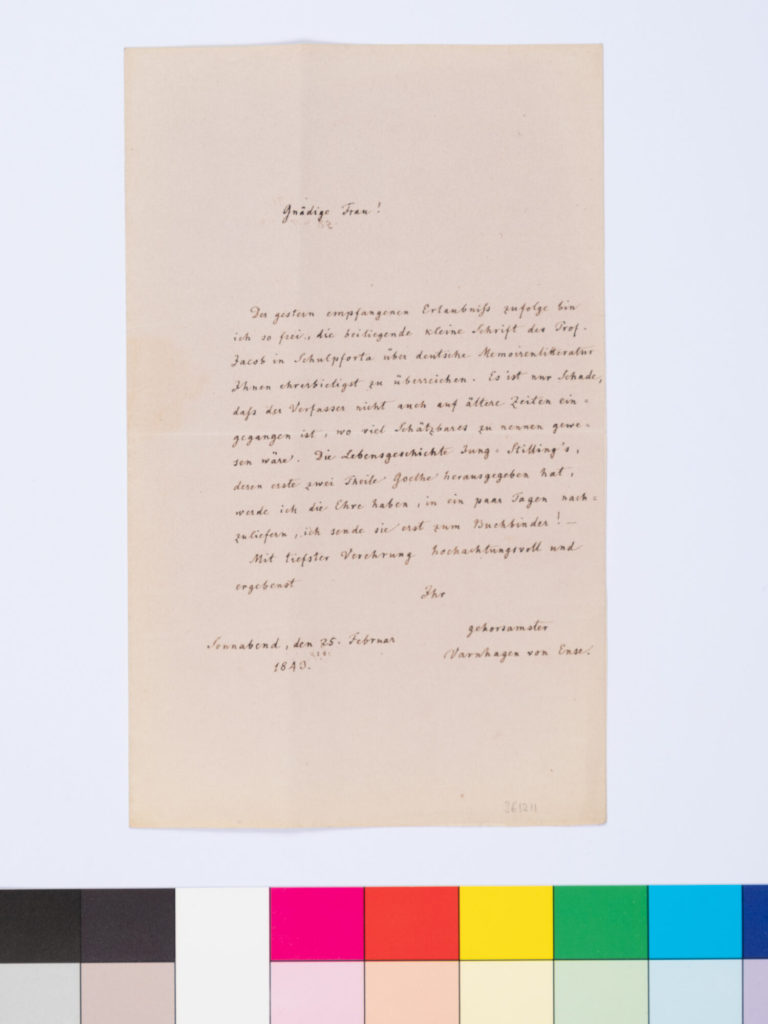 Gnädige Frau!
Der gestern empfangenen Erlaubniß zufolge bin
ich so frei, die beiliegende kleine Schrift des Prof.
Jacob in Schulpforta über deutsche Memoirenlitteratur
Ihnen ehrerbietigst zu überreichen. Es ist nur Schade,
daß der Verfasser nicht auch auf ältere Zeiten ein-
gegangen ist, wo viel Schätzbares zu nennen gewe-
sen wäre. Die Lebensgeschichte Jung-Stilling's,
deren erste zwei Theile Goethe herausgegeben hat,
werde ich die Ehre haben, in ein paar Tagen nach-
zuliefern, ich sende sie erst zum Buchbinder! —
Mit tiefster Verehrung hochachtungsvoll und
ergebenst
Ihr
gehorsamster
Varnhagen von Ense.
Sonnabend, den 25. Februar
1843.